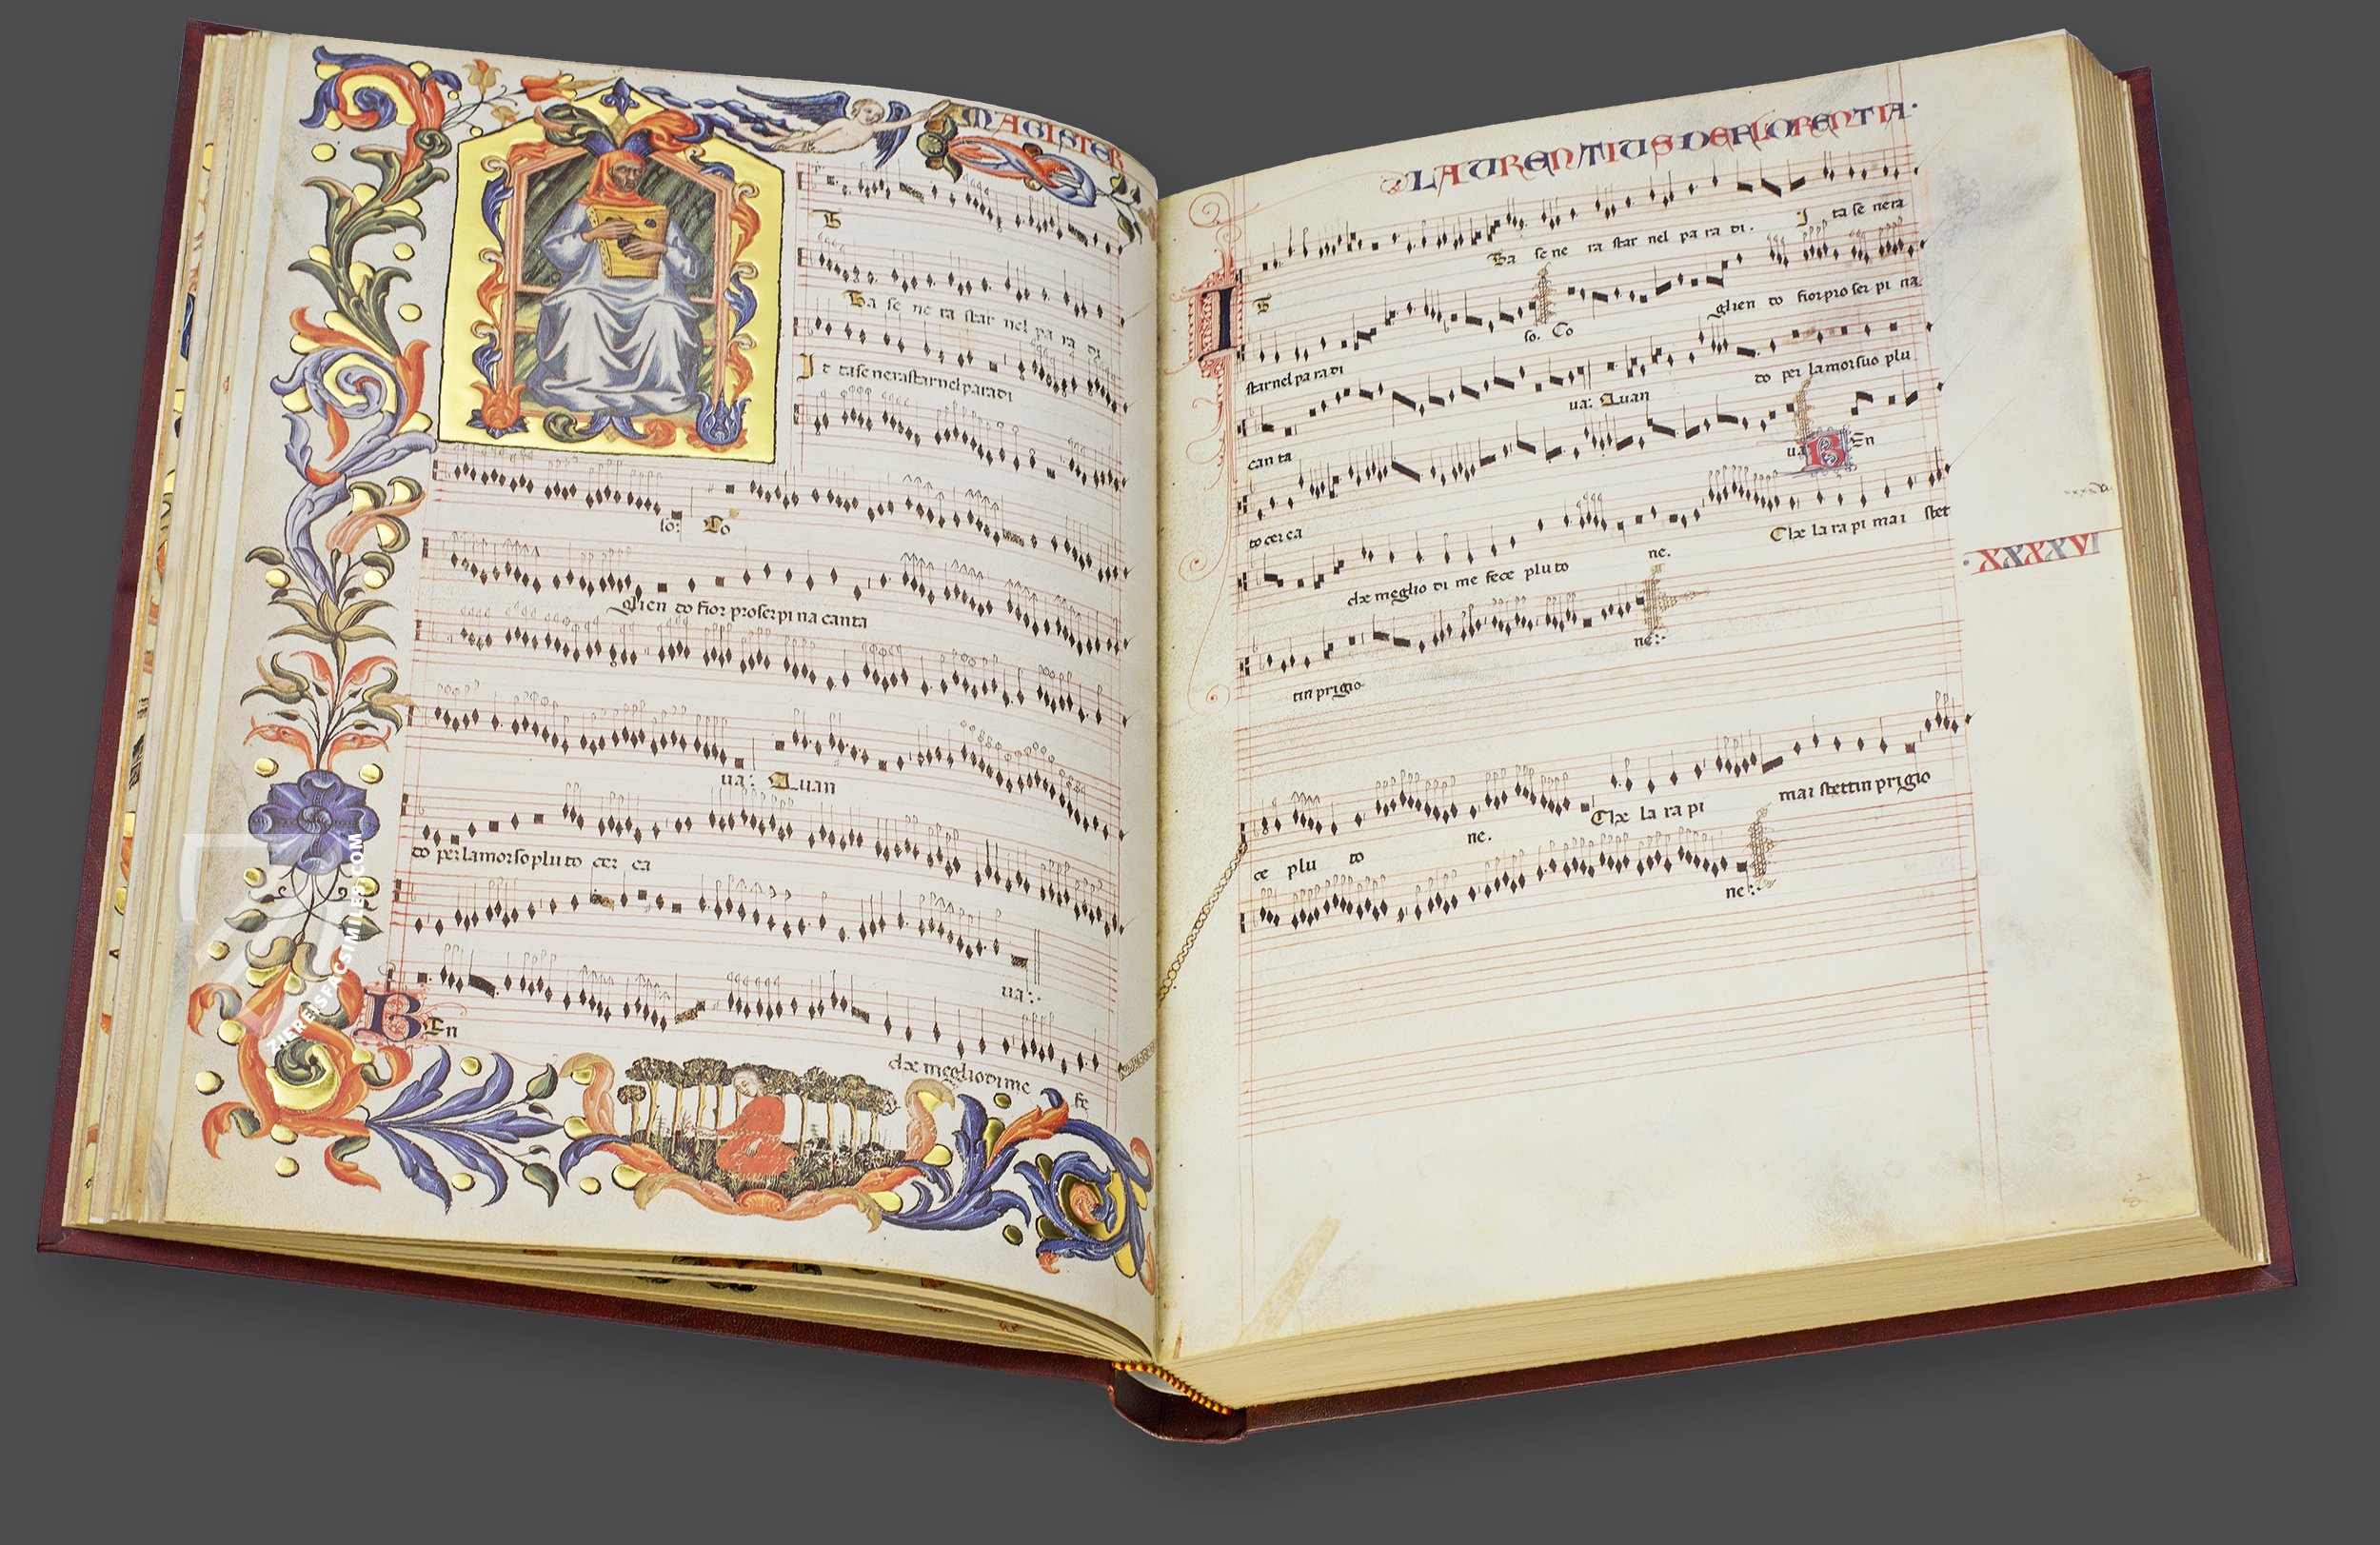 MAGISTER
B
Ta se ne ra star nel pa ra di
I t tase nerastarnelparadi
so: Co
glien do fior proserpi na canta
ua: Quan
do perlamorsopluto cer ca
ua:
B En
che megliodime
fe
LAURENTIUS DE FLORENTIA
Ta se ne ra star nel pa ra di. I ta se nera
I B
so. Co glien do fiorproserpi na
starnel pa ra di
ua: Quan do per lamorsuo plu
can ta
ua B En
to cer ca
ne. Che la ra pi mai stet
che meglio di me fece pluto
XXXXVI
ne:
tin prigio
ce plu to ne. Che la ra pi mai stettin prigio
ne:
ZIEREISFACSIMILES.COM